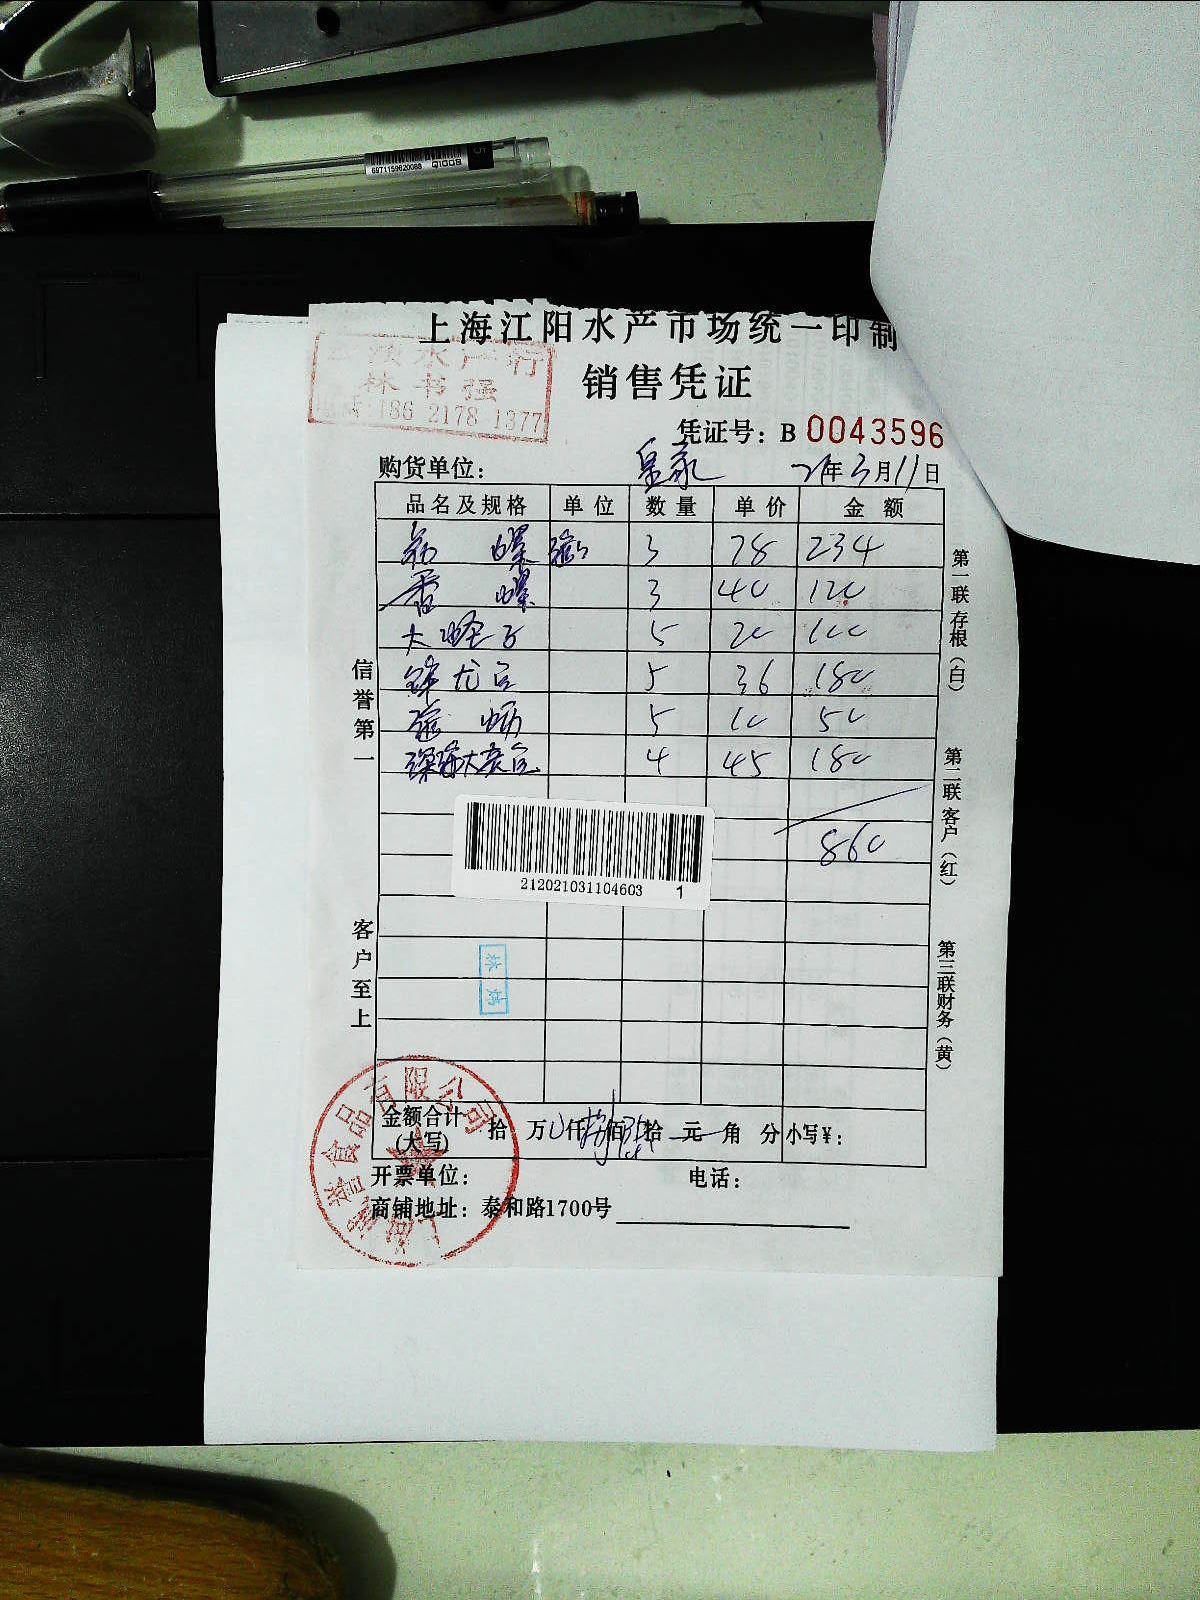 5
6971159620088 Q1008
上海江阳水产市场统一印制
水产行
林书强
电话:186 2178 1377
销售凭证
凭证号: B 0043596
购货单位: 皇家 21年3月11日
品名及规格 单位 数量 单价 金额
螺 3 78 234
香螺 3 40 120
大蛏子 5 20 100
5 36 180
5 10 50
4 45 180
860
212021031104603 1
信誉第一
客户至上
第一联存根(白)
第二联客户(红)
第三联财务(黄)
金额合计(大写) 拾 万 仟 捌佰 拾 元 角 分 小写¥:
开票单位: 电话:
商铺地址: 泰和路1700号
誉食品有限公司